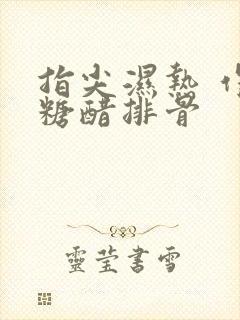 指尖濕熱
糖醋排骨
靈瑩書雪